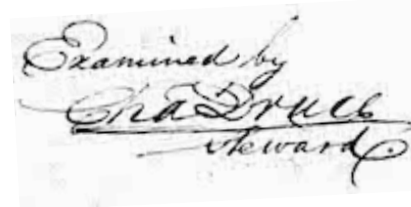 Examined by
Cha Druce
Steward